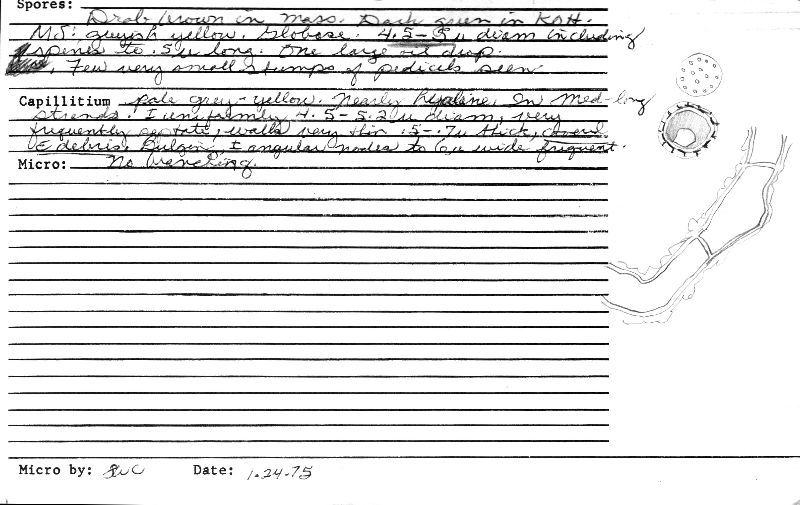 Spores:
Drab brown in mass. Dark green in KOH.
MS: greyish yellow. Globose. 4.5-5 u diam including
spines to .5 u long. One large oil drop.
Few very small stumps of pedicels seen.
Capillitium pale grey-yellow. Nearly hyaline. In med-long
strands. I uniformly 4.5-5.2 u diam, very
frequently septate, walls very thin .5-.7 u thick, covered
debris. Bulging ± angular nodes to 6 u wide frequent.
Micro: No branching.
Micro by: Date: 1-24-75